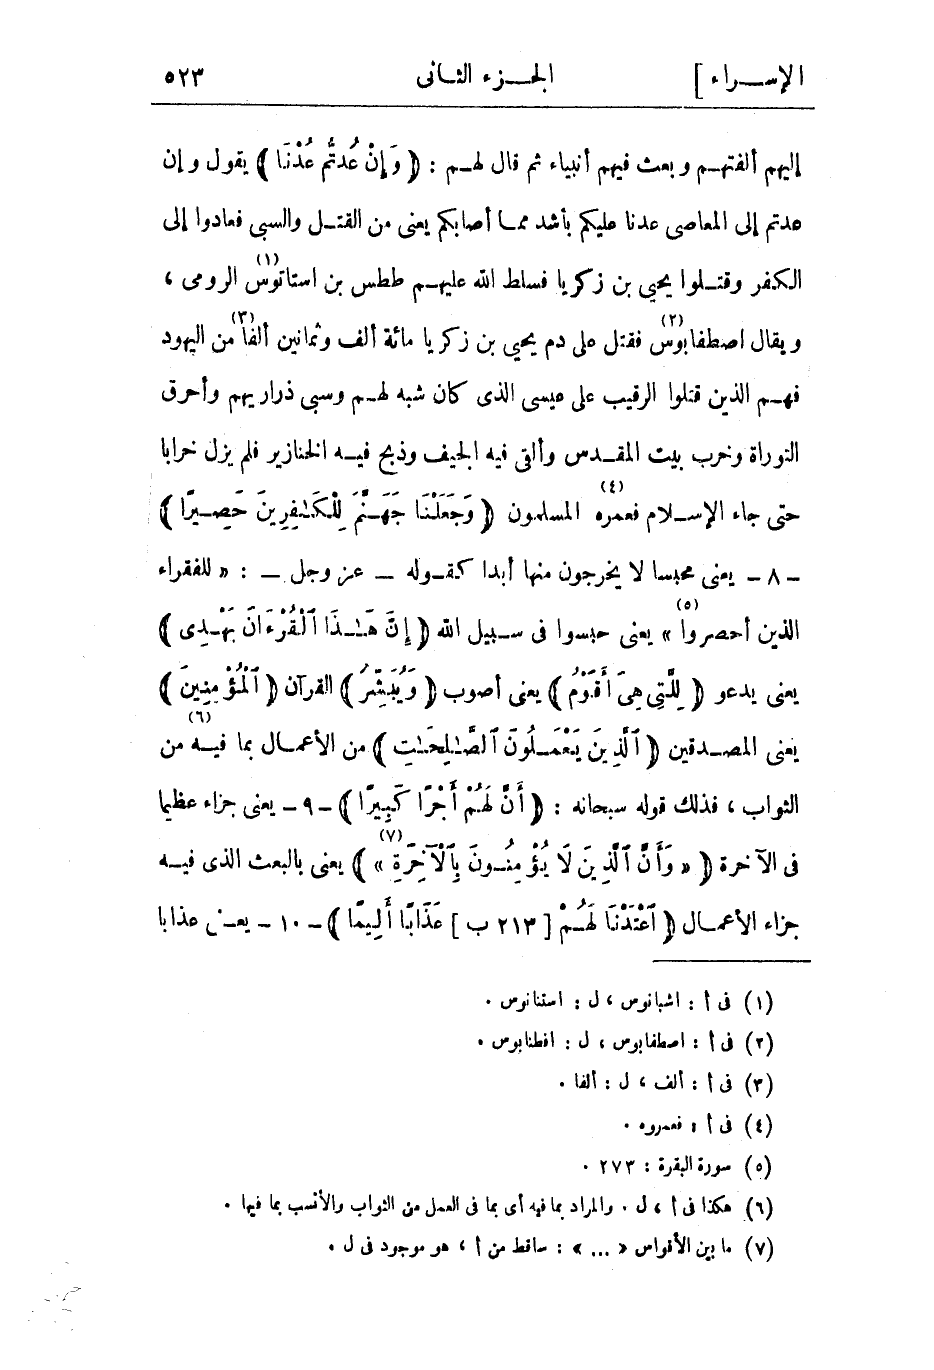 الإسراء ] الجزء الثانى ٥٢٣
إليهم ألفتهم وبعث فيهم أنبياء ثم قال لهم : ﴿ وَإِنْ عُدتُّمْ عُدْنَا ﴾ يقول وإن
عدتم إلى المعاصى عدنا عليكم بأشد مما أصابكم يعنى من القتل والسبى فعادوا إلى
الكفر وقتلوا يحيى بن زكريا فسلط الله عليهم ططس بن استاتوس (١) الرومى ،
ويقال اصطفابوس (٢) فقتل على دم يحيى بن زكريا مائة ألف وثمانين ألفا (٣) من اليهود
فهم الذين قتلوا الرقيب على عيسى الذى كان شبه لهم وسبى ذراريهم وأحرق
التوراة وخرب بيت المقدس وألقى فيه الجيف وذبح فيه الخنازير فلم يزل خرابا
حتى جاء الإسلام فعمره (٤) المسلمون ﴿ وَجَعَلْنَا جَهَنَّمَ لِلْكَـٰفِرِينَ حَصِيرًا ﴾
- ٨ - يعنى محبسا لا يخرجون منها أبدا كقوله - عز وجل - : « للفقراء
الذين أحصروا » (٥) يعنى حبسوا فى سبيل الله ﴿ إِنَّ هَـٰذَا ٱلْقُرْءَانَ يَهْدِى ﴾
يعنى يدعو ﴿ لِلَّتِى هِىَ أَقْوَمُ ﴾ يعنى أصوب ﴿ وَيُبَشِّرُ ﴾ القرآن ﴿ ٱلْمُؤْمِنِينَ ﴾
يعنى المصدقين ﴿ ٱلَّذِينَ يَعْمَلُونَ ٱلصَّـٰلِحَـٰتِ ﴾ من الأعمال بما فيه (٦) من
الثواب ، فذلك قوله سبحانه : ﴿ أَنَّ لَهُمْ أَجْرًا كَبِيرًا ﴾ - ٩ - يعنى جزاء عظيما
فى الآخرة ﴿ « وَأَنَّ ٱلَّذِينَ لَا يُؤْمِنُونَ بِٱلْآخِرَةِ » (٧) ﴾ يعنى بالبعث الذى فيه
جزاء الأعمال ﴿ أَعْتَدْنَا لَهُمْ [ ٢١٣ ب ] عَذَابًا أَلِيمًا ﴾ - ١٠ - يعنى عذابا
(١) فى أ : اشبانوس ، ل : استنانوس .
(٢) فى أ : اصطفابوس ، ل : افطنابوس .
(٣) فى أ : ألف ، ل : ألفا .
(٤) فى أ : فعمروه .
(٥) سورة البقرة : ٢٧٣ .
(٦) هكذا فى أ ، ل . والمراد بما فيه أى بما فى العمل من الثواب والأنسب بما فيها .
(٧) ما بين الأقواس « ... » : ساقط من أ ، هو موجود فى ل .